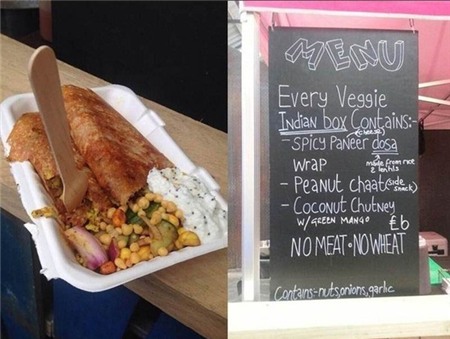 MENU
Every Veggie
Indian box Contains:-
(cheese)
- SPICY PaNeer dosa
wrap made from rice
& lentils
- Peanut chaat (side
snack)
- Coconut Chutney
W/ GREEN MANGO £6
NO MEAT • NO WHEAT
Contains - nuts, onions, garlic